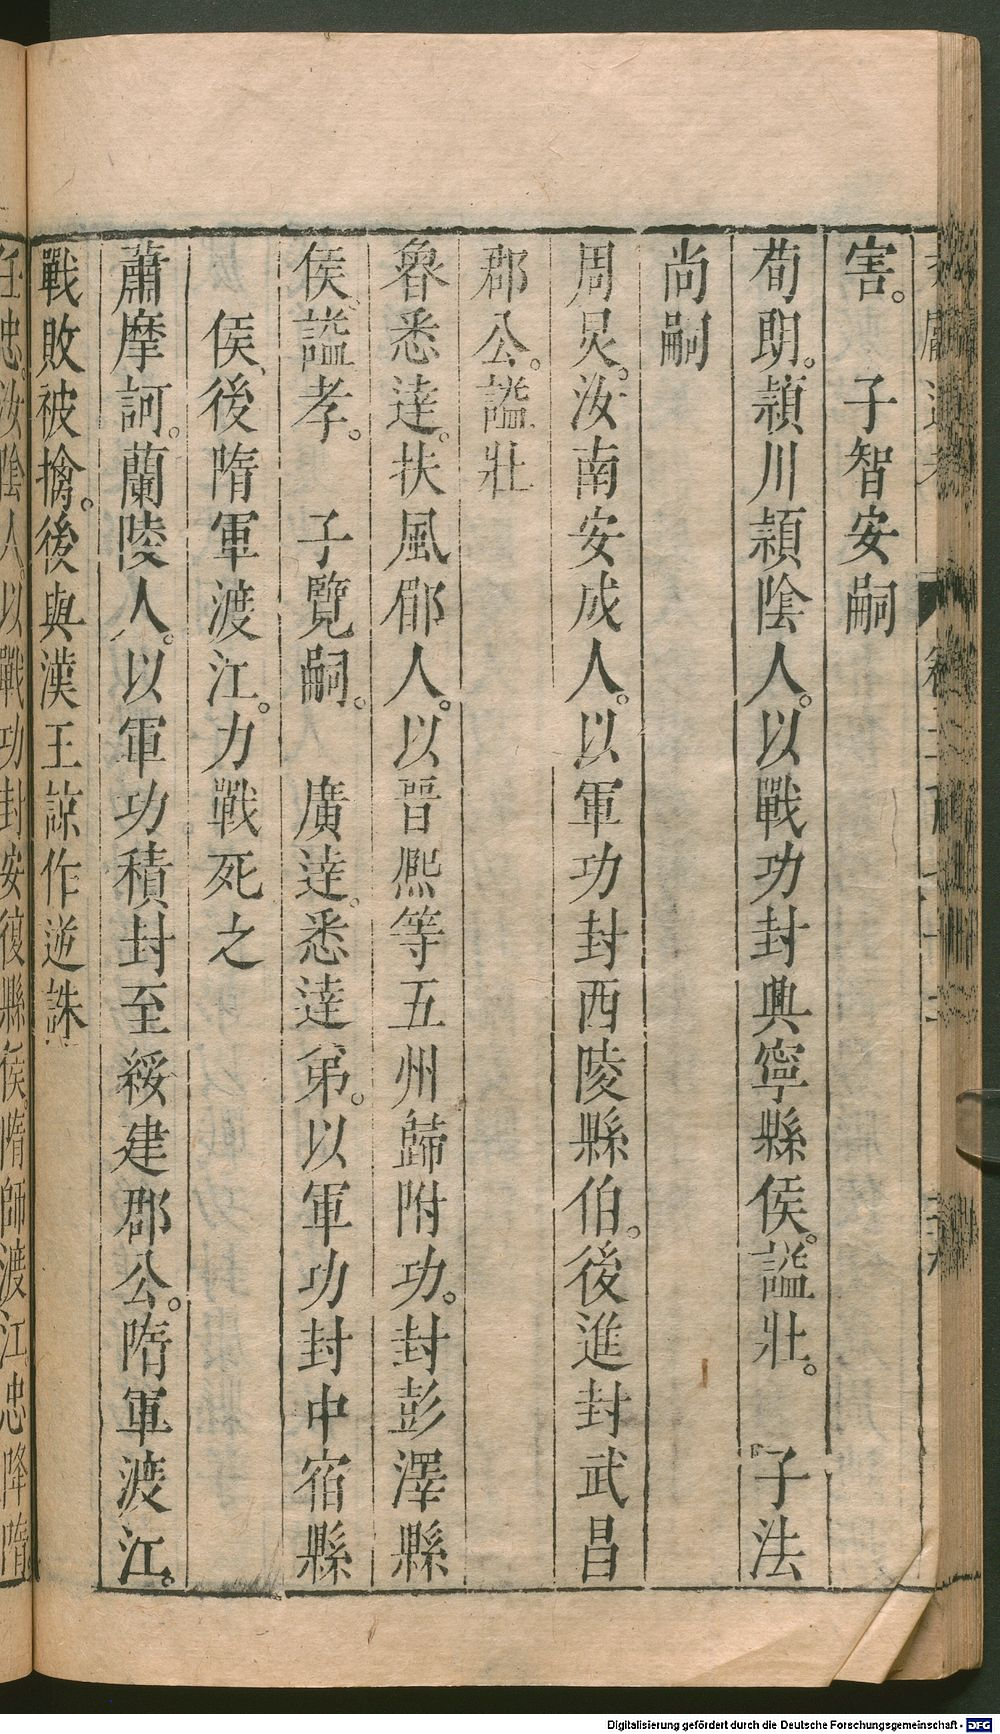 害。　子智安嗣
荀朗。潁川潁陰人。以戰功封興寧縣侯。謚壯。　子法
尚嗣
周炅。汝南安成人。以軍功封西陵縣伯。後進封武昌
郡公。謚壯
魯悉達。扶風郿人。以晉熙等五州歸附功。封彭澤縣
侯、謚孝。　子覽嗣。　廣達。悉達弟。以軍功封中宿縣
侯、後隋軍渡江。力戰死之
蕭摩訶。蘭陵人。以軍功積封至綏建郡公。隋軍渡江。
戰敗被擒。後與漢王諒作逆誅
任忠。汝陰人。以戰功封安復縣侯。隋師渡江忠降隋
Digitalisierung gefördert durch die Deutsche Forschungsgemeinschaft - DFG